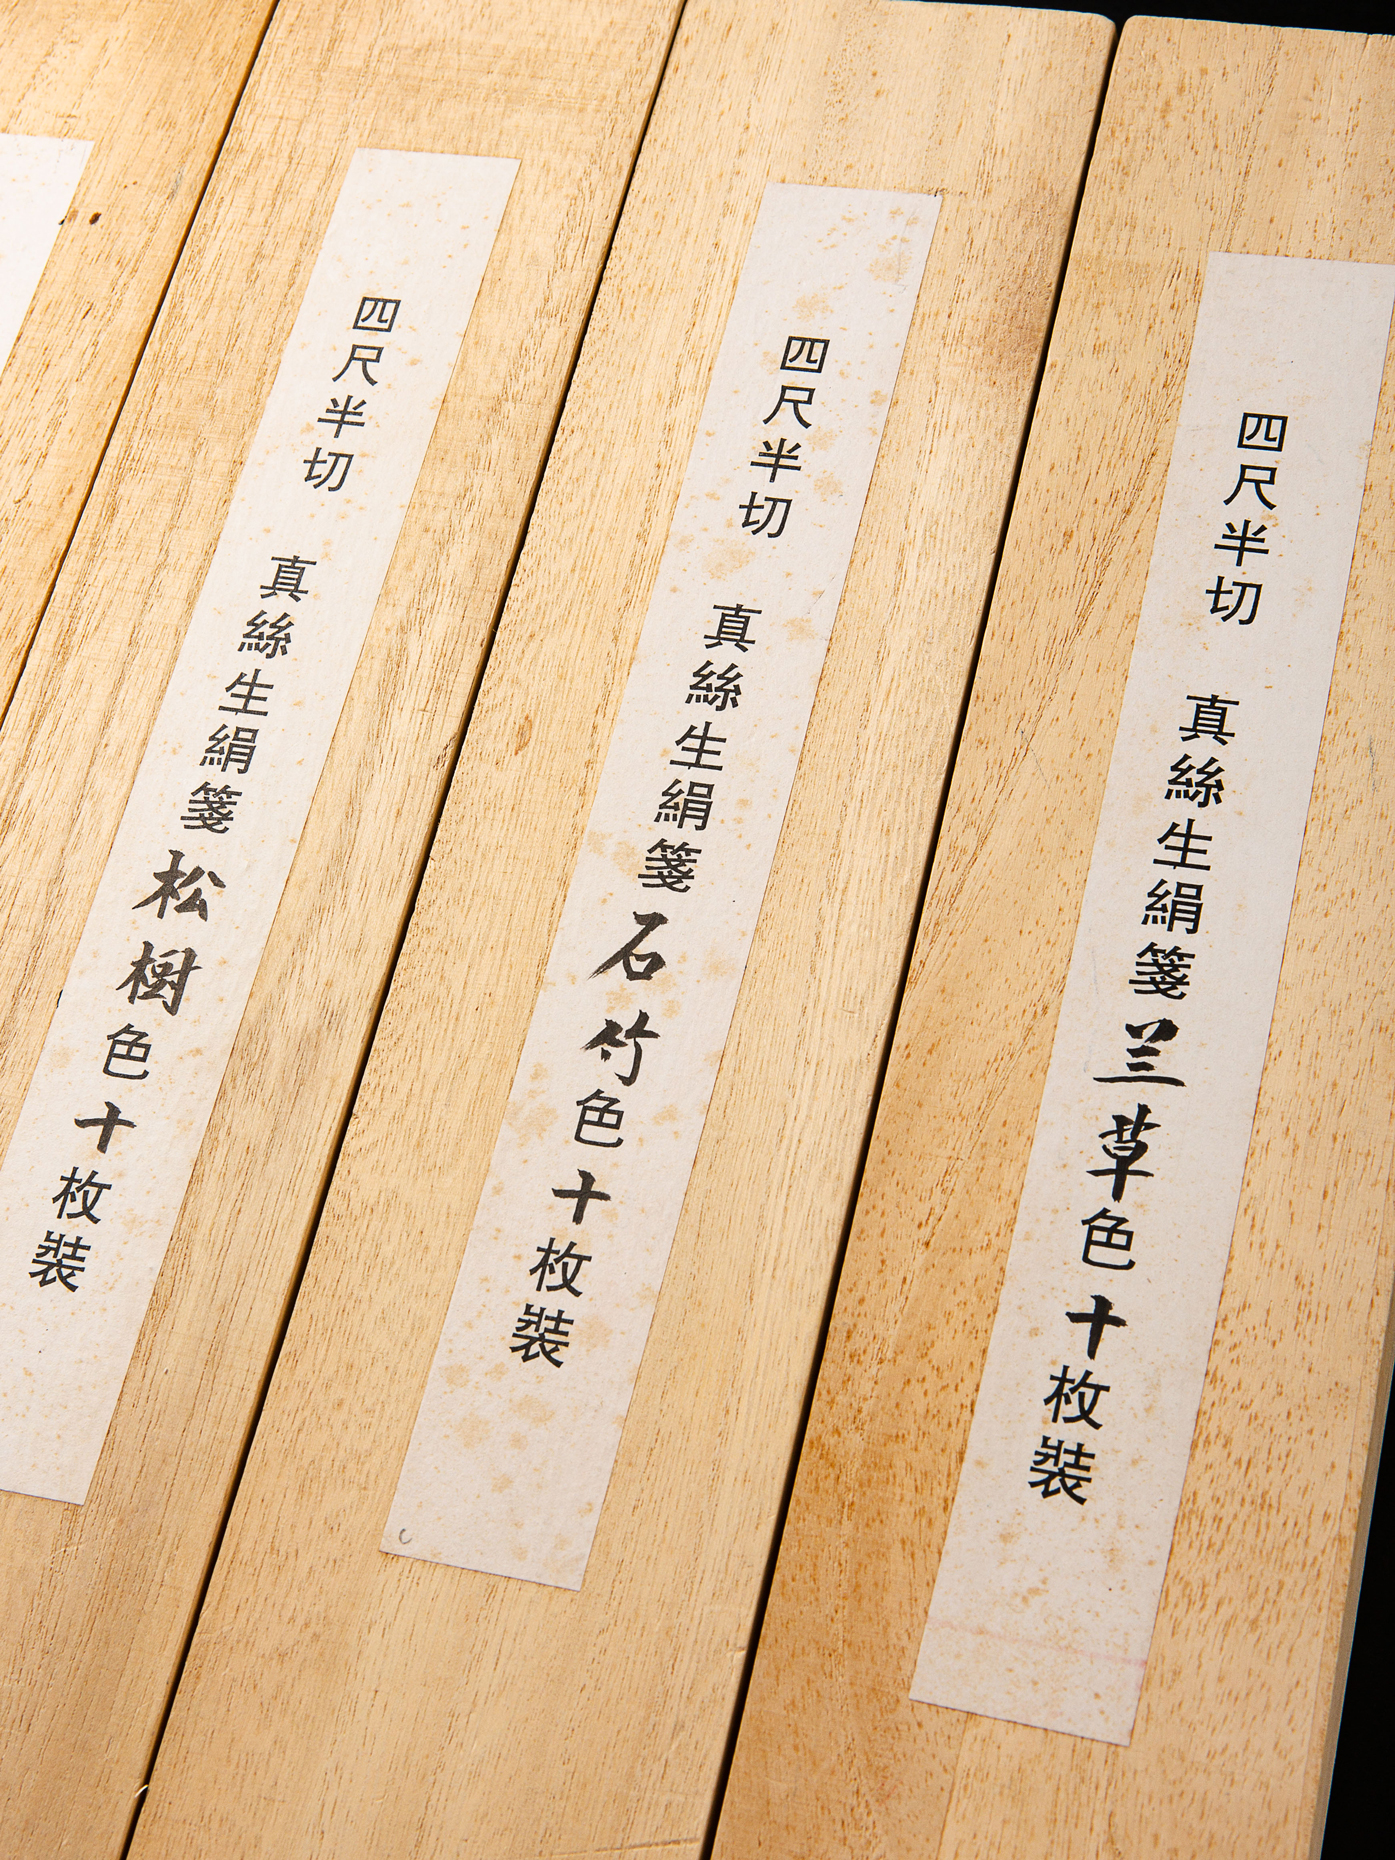 四尺半切 真絲生絹箋兰草色十枚装
四尺半切 真絲生絹箋石竹色十枚装
四尺半切 真絲生絹箋松樹色十枚装